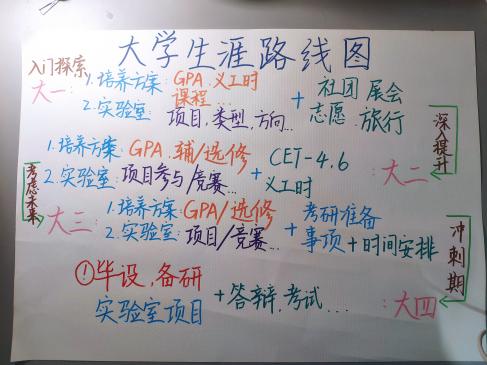 大学生涯路线图
入门探索
大一: 1.培养方案: GPA、义工时
课程...
2.实验室: 项目,类型,方向...
+ 社团 尾会
志愿 旅行
深入提升
1.培养方案: GPA、辅/选修
2.实验室: 项目参与/竞赛...
+ CET-4.6
义工时
: 大二
考虑未来
大三: 1.培养方案: GPA/选修
2.实验室: 项目/竞赛...
+ 考研准备
事项+时间安排
冲刺期
①毕设,备研
实验室项目
+ 答辩,考试...
: 大四